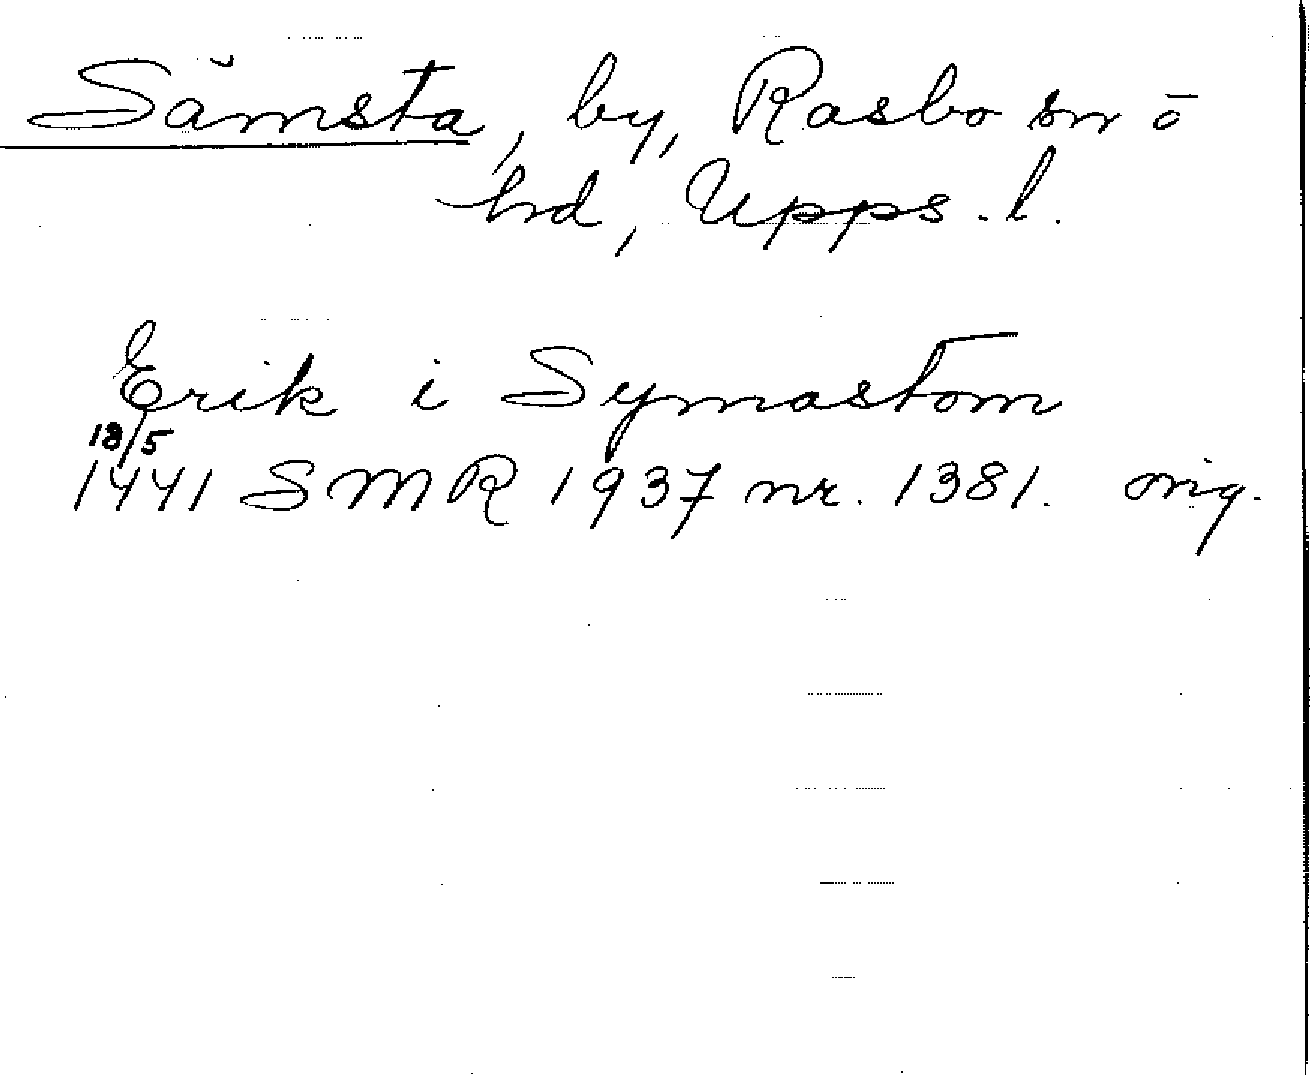 Sämsta, by, Rasbo sn ō
hd, Upps. l.
Erik i Symastom
18/5
1441 SMR 1937 nr. 1381. orig.